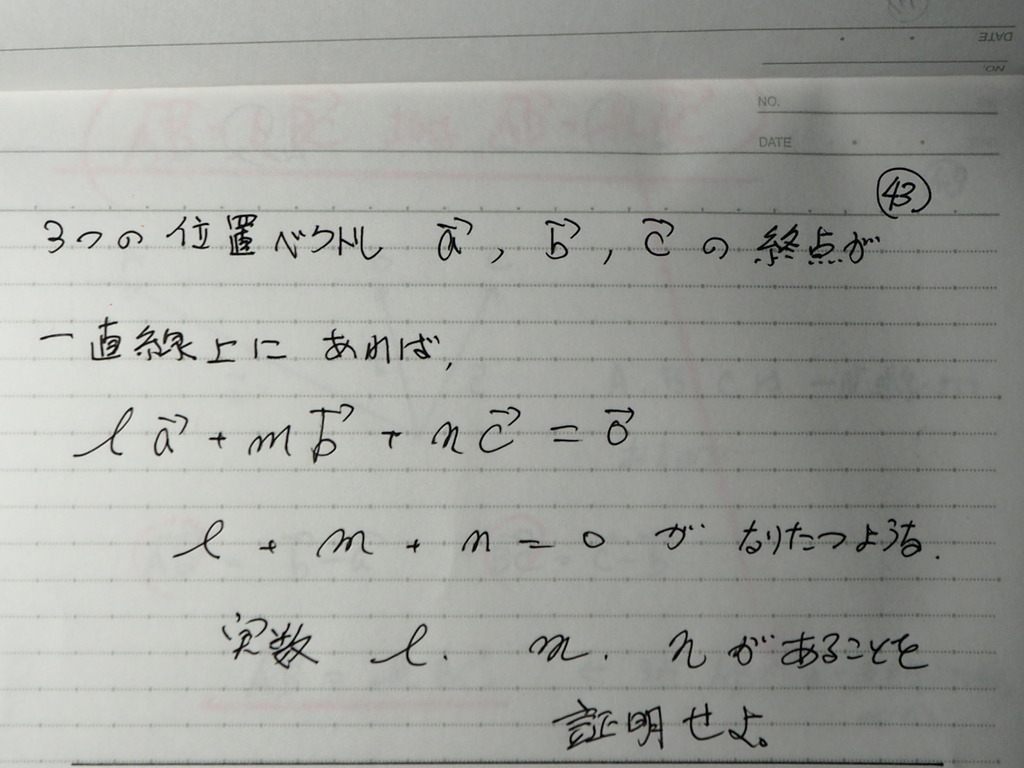 NO.
DATE
NO.
DATE
㊸
3つの位置ベクトル a⃗, b⃗, c⃗ の終点が
一直線上にあれば,
l a⃗ + m b⃗ + n c⃗ = 0⃗
l + m + n = 0 がなりたつような.
実数 l. m. n があることを
証明せよ。